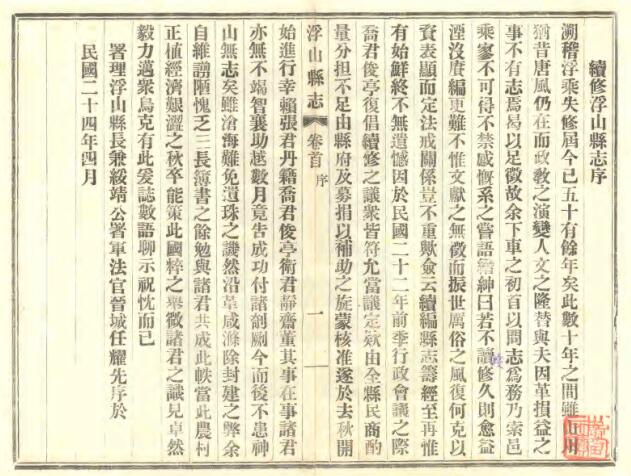 續修浮山縣志序
溯稽浮乘失修屆今已五十有餘年矣此數十年之間雖山川
猶昔唐風仍在而政敎之演變人文之隆替與夫因革損益之
事不有志焉曷以足徵故余下車之初首以問志爲務乃索邑
乘寥不可得不禁感慨系之嘗語縉紳曰若不讀修久則愈益
湮沒賡編更難不惟文獻之無徵而振世厲俗之風復何克以
資表顯而定法戒關係豈不重歟僉云續編縣志籌經至再惟
有始鮮終不無遺憾因於民國二十二年前季行政會議之際
喬君俊亭復倡續修之議衆皆符允當議定欵由全縣民商酌
量分担不足由縣府及募捐以補助之旋蒙核准遂於去秋開
浮山縣志
卷首
序
一
始進行幸賴張君丹籍喬君俊亭衛君靜齋董其事在事諸君
亦無不竭智襄助越數月竟告成功付諸剞劂今而後不患神
山無志矣雖滄海難免遺珠之譏然沿革咸滌除封建之弊余
自維謭陋愧乏三長簿書之餘勉與諸君共成此帙當此農村
正值經濟艱澀之秋卒能策此國粹之舉徵諸君之識見卓然
毅力邁衆烏克有此爰誌數語聊示祝忱而已
署理浮山縣長兼綏靖公署軍法官晉城任耀先序於
民國二十四年四月